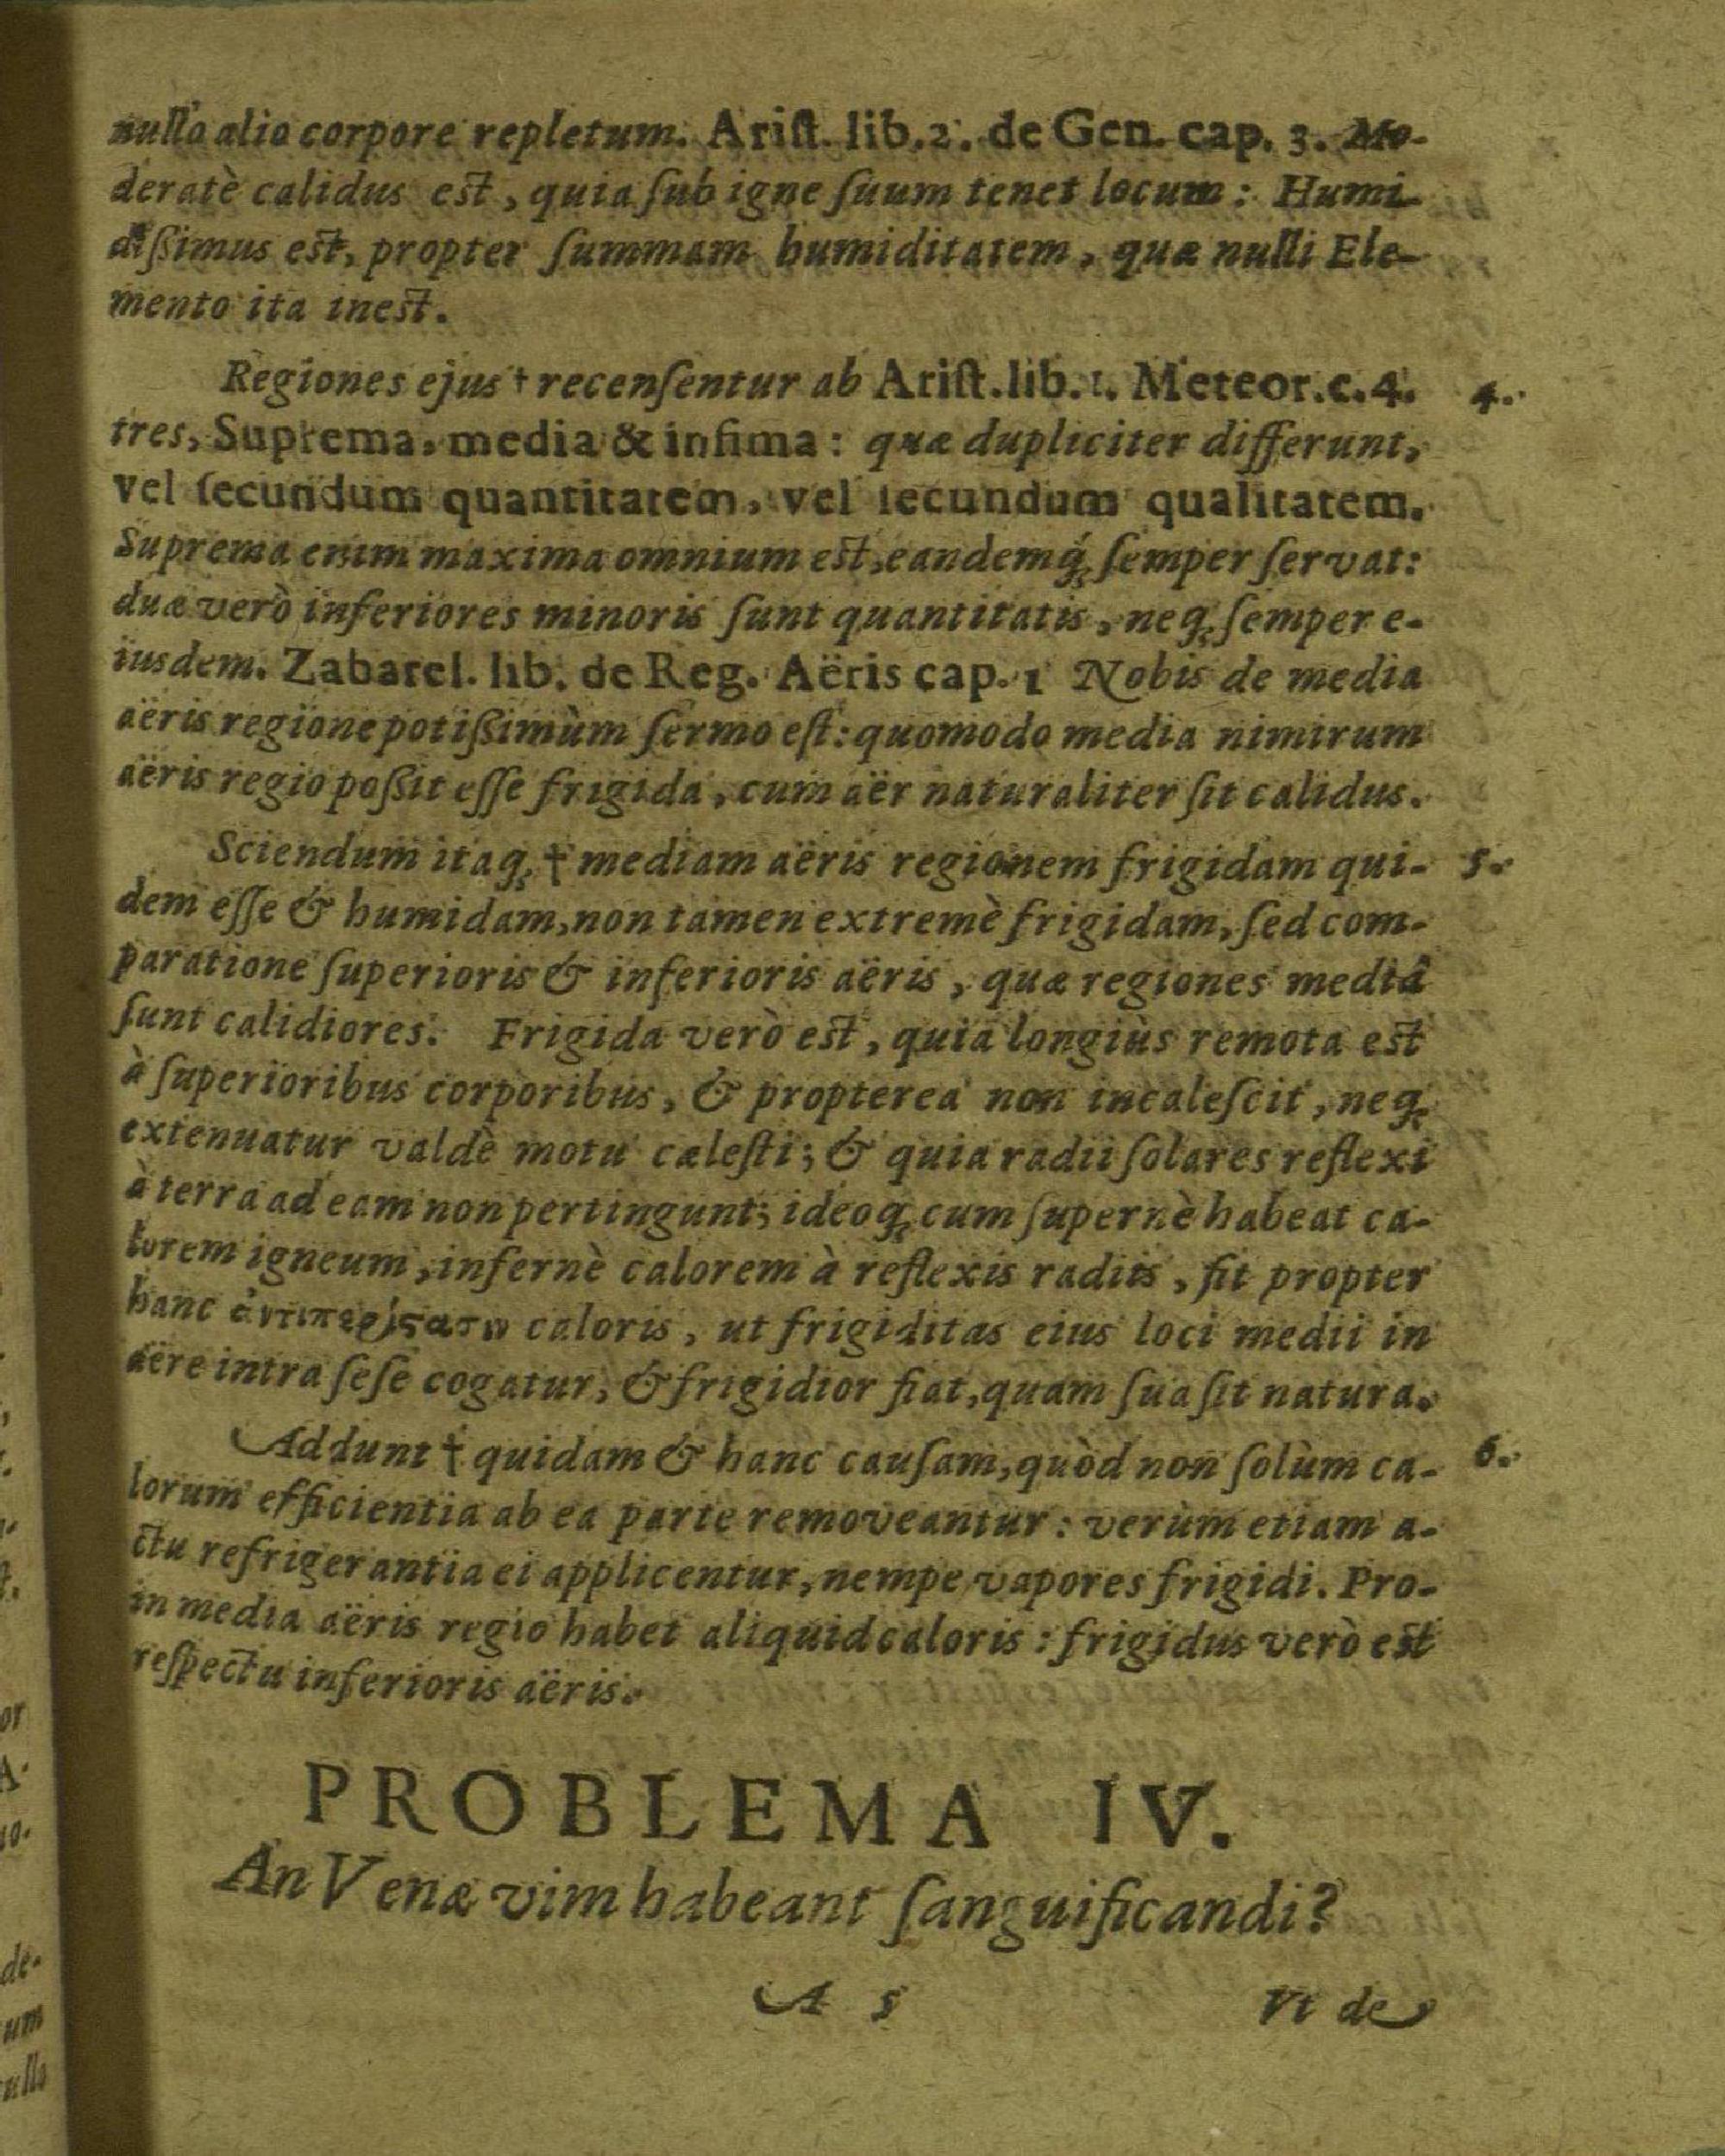 nullo alio corpore repletum. Arist. lib. 2. de Gen. cap. 3. Mo-
deratè calidus est, quia sub igne suum tenet locum: Humi-
dissimus est, propter summam humiditatem, quæ nulli Ele-
mento ita inest.
Regiones ejus † recensentur ab Arist. lib. 1. Meteor. c. 4. 4.
tres, Suprema, media & infima: quæ dupliciter differunt,
vel secundum quantitatem, vel secundum qualitatem.
Suprema enim maxima omnium est, eandemq́; semper servat:
duæ verò inferiores minoris sunt quantitatis, neq; semper e-
iusdem. Zabarel. lib. de Reg. Aëris cap. 1 Nobis de media
aëris regione potissimùm sermo est: quomodo media nimirum
aëris regio possit esse frigida, cum aër naturaliter sit calidus.
Sciendum itaq; † mediam aëris regionem frigidam qui- 5.
dem esse & humidam, non tamen extremè frigidam, sed com-
paratione superioris & inferioris aëris, quæ regiones mediâ
sunt calidiores. Frigida verò est, quia longiùs remota est
à superioribus corporibus, & propterea non incalescit, neq;
extenuatur valdè motu cælesti; & quia radii solares reflexi
à terra ad eam non pertingunt; ideoq; cum supernè habeat ca-
lorem igneum, infernè calorem à reflexis radiis, fit propter
hanc ἀντιπερίστασιν caloris, ut frigiditas eius loci medii in
aëre intra sese cogatur, & frigidior fiat, quam sua sit natura.
Addunt † quidam & hanc causam, quòd non solùm ca- 6.
lorum efficientia ab ea parte removeantur: verùm etiam a-
ctu refrigerantia ei applicentur, nempe vapores frigidi. Pro-
in media aëris regio habet aliquid caloris: frigidus verò est
respectu inferioris aëris.
PROBLEMA IV.
An Venæ vim habeant sanguificandi?
A 5 Vt de